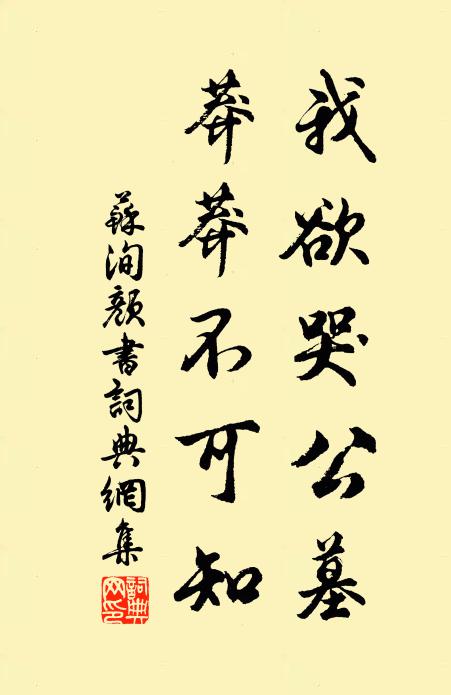 我欲哭公墓
莽莽不可知
蘇洵顏書詞典網集
詞典網印